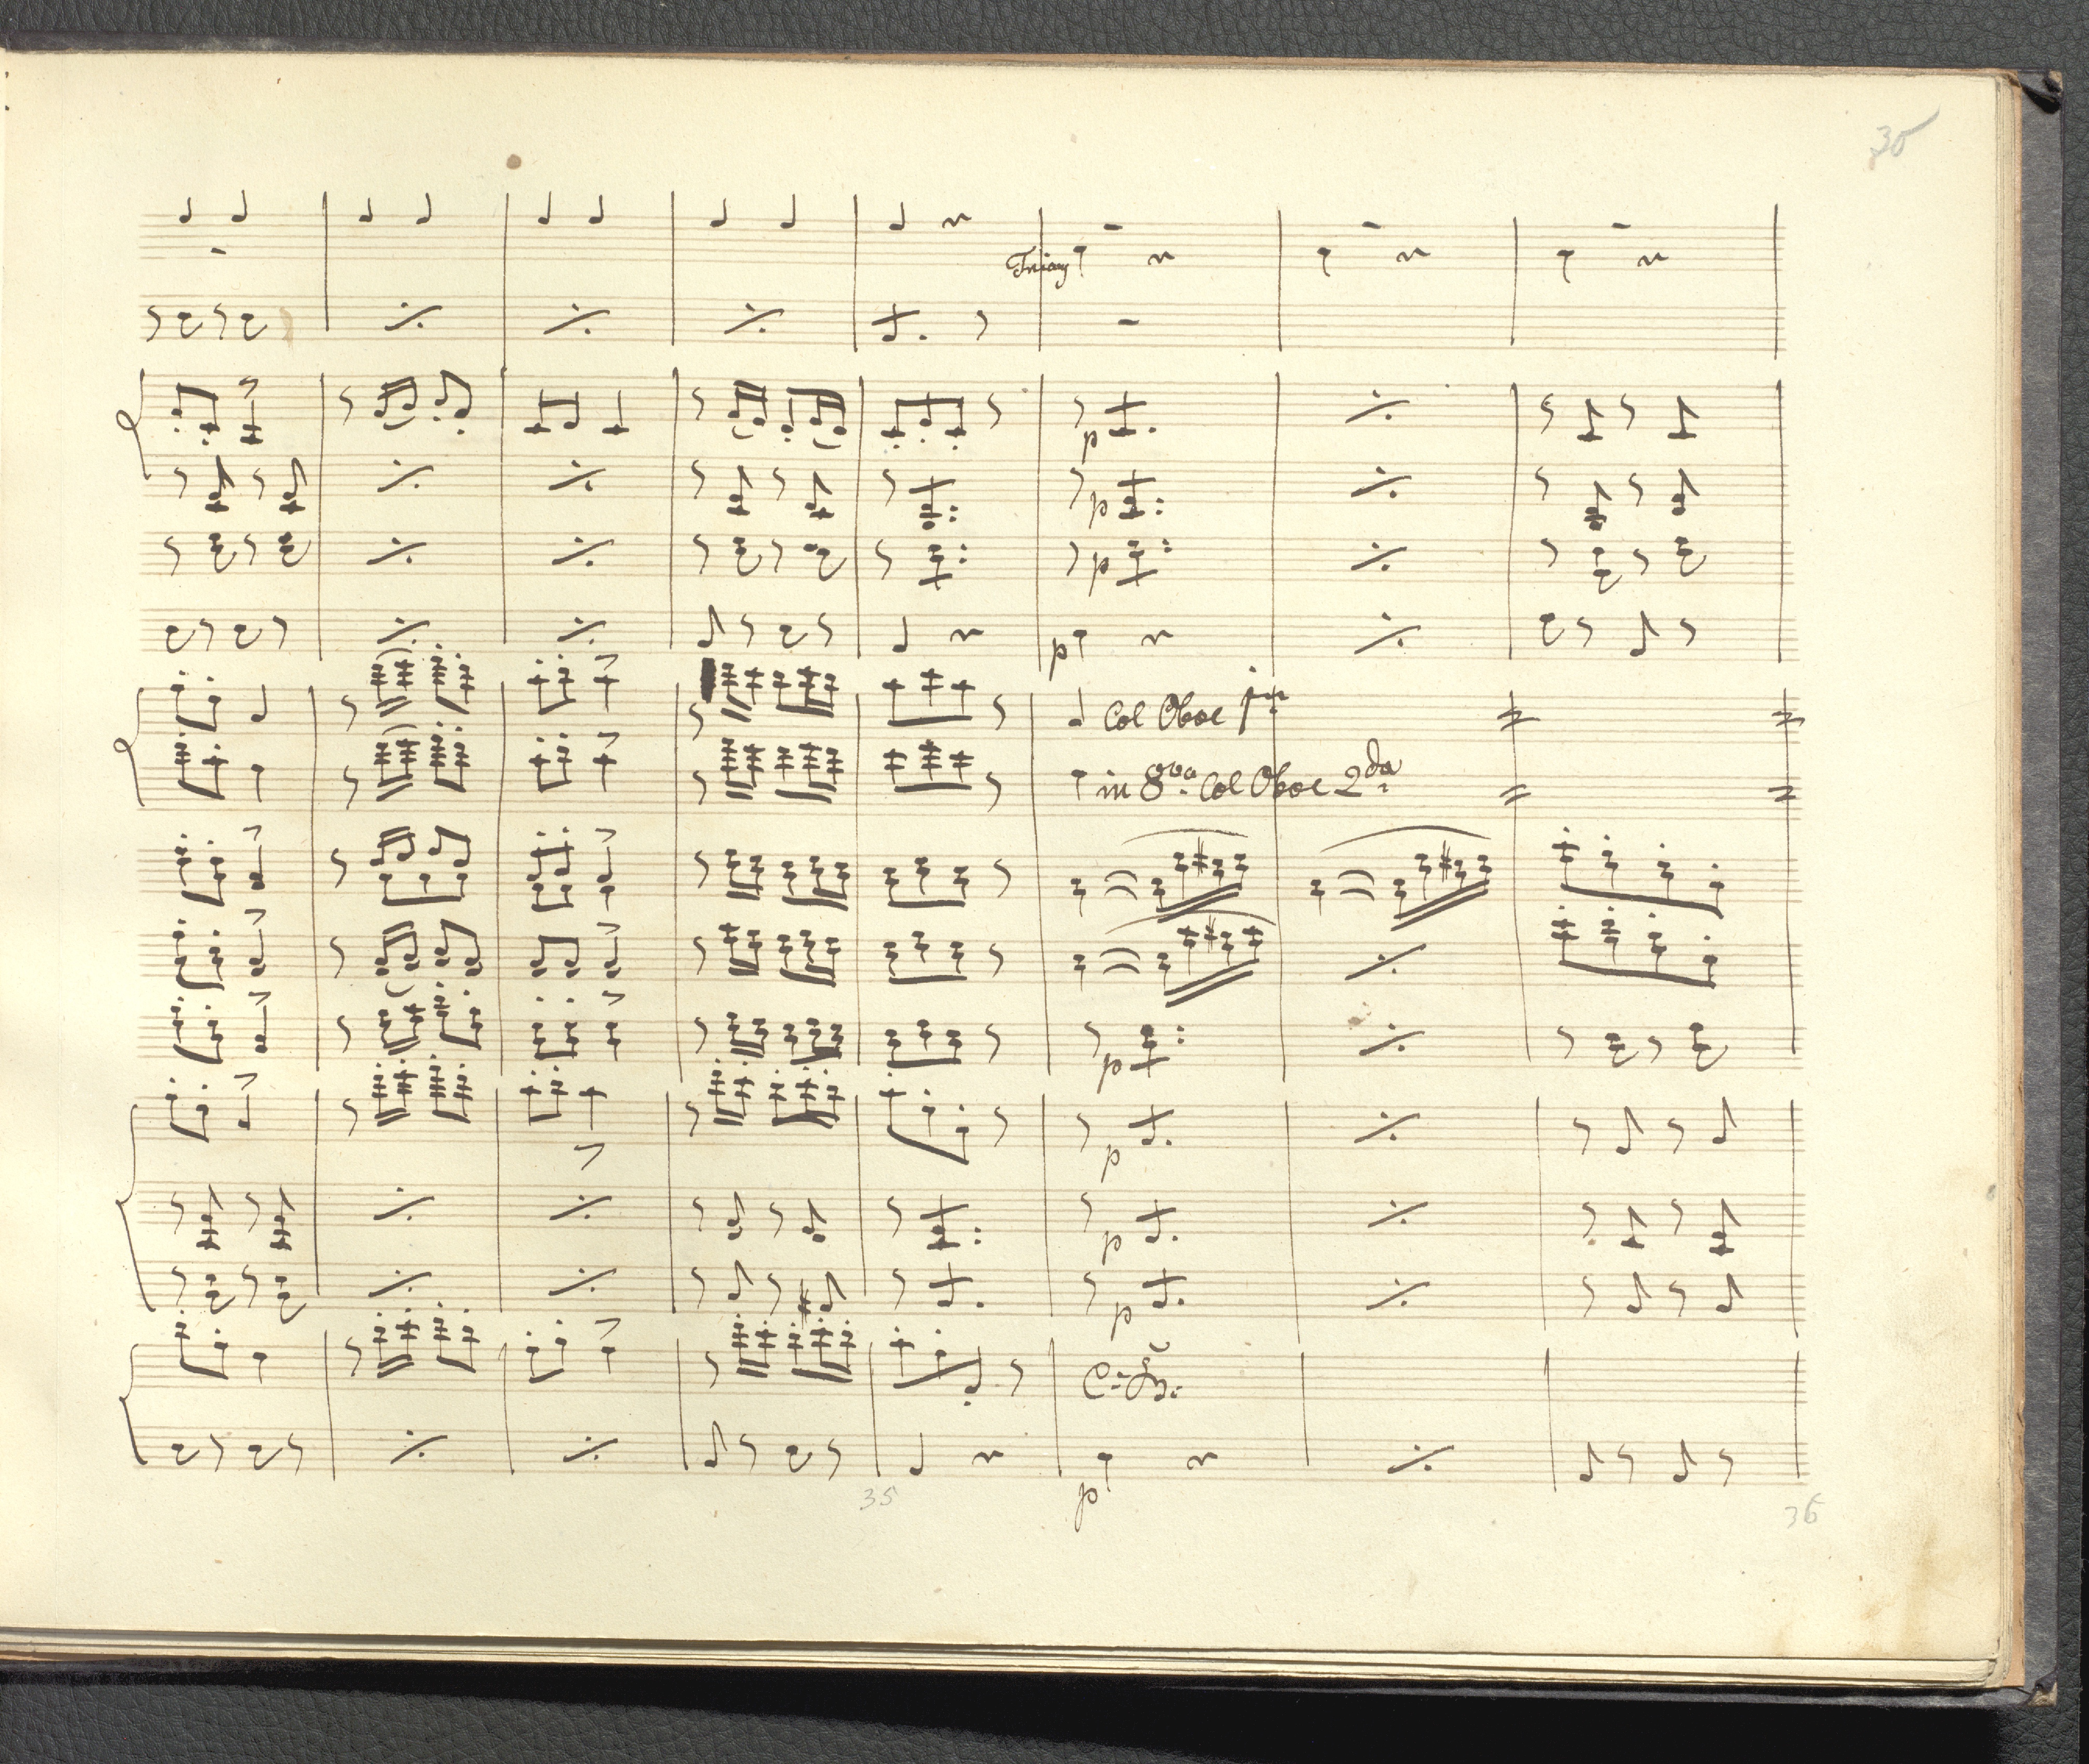 30
Triang
p
p
p
p
Col Oboe 1mo
in 8va. Col Oboe 2da.
p
p
p
p
p
35
36